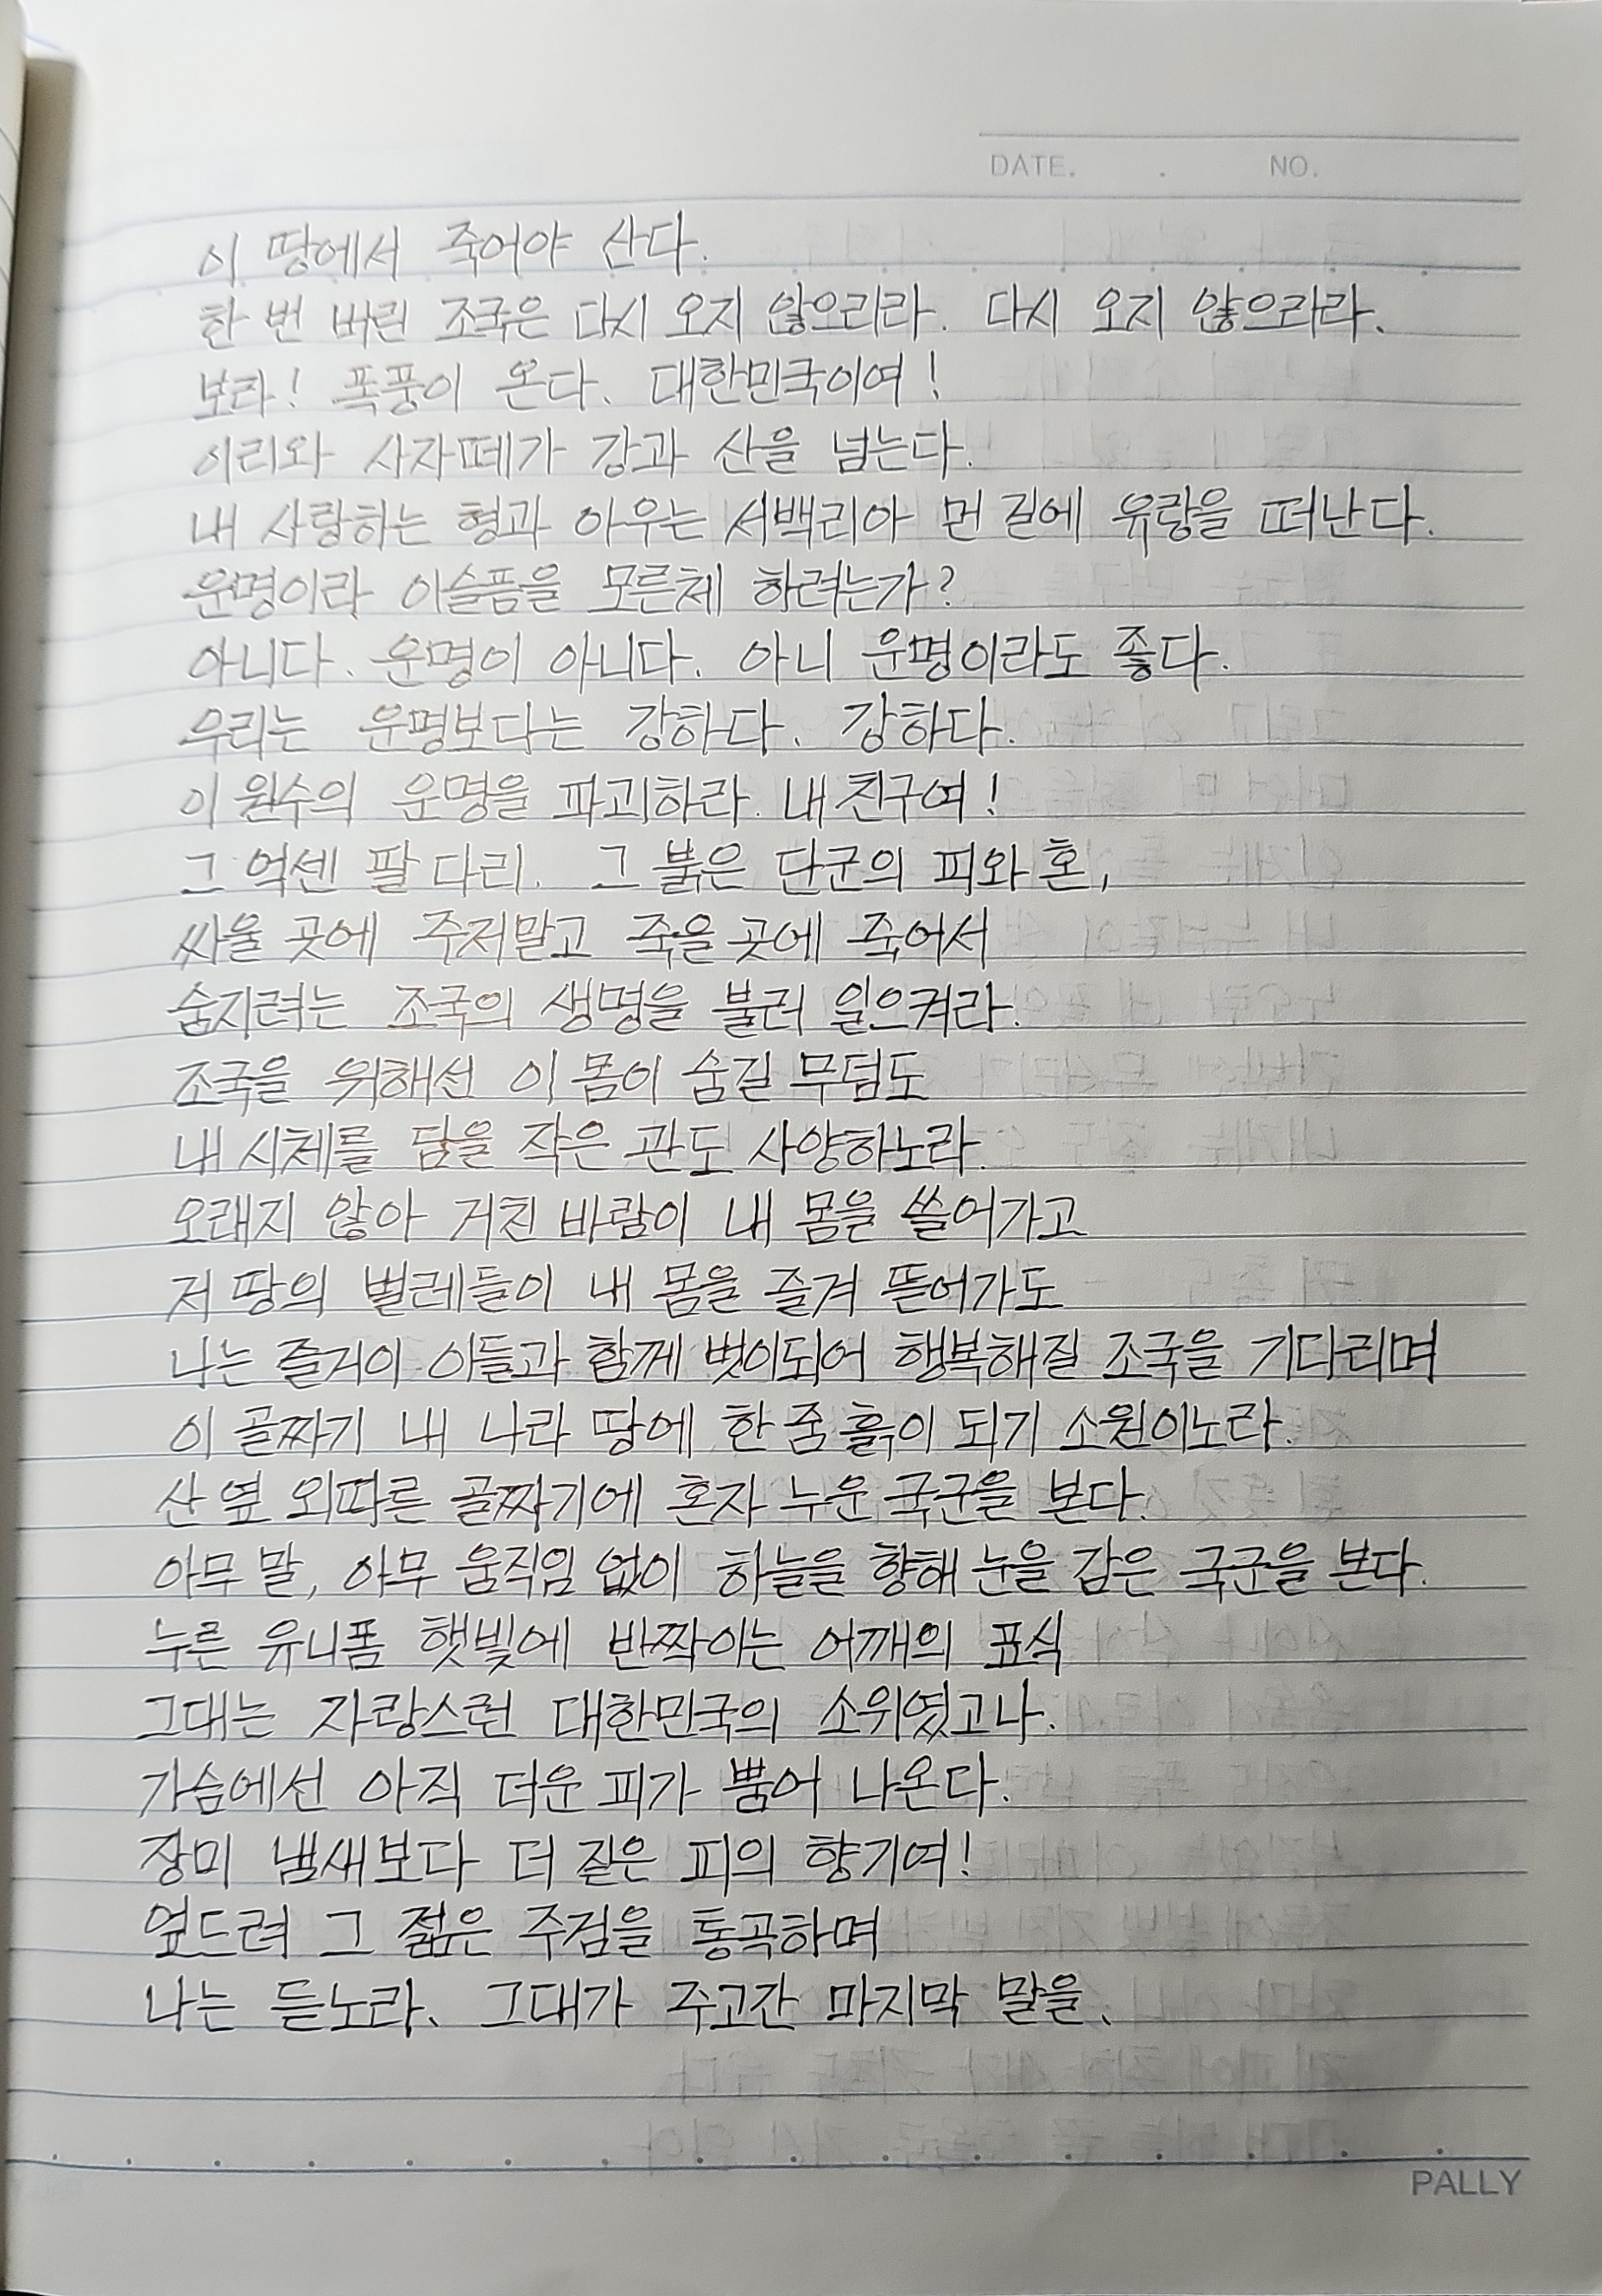 DATE. . NO.
이 땅에서 죽어야 산다.
한 번 버린 조국은 다시 오지 않으리라. 다시 오지 않으리라.
보라! 폭풍이 온다. 대한민국이여!
이리와 사자떼가 강과 산을 넘는다.
내 사랑하는 형과 아우는 서백리아 먼 길에 유랑을 떠난다.
운명이라 이슬픔을 모른체 하려는가?
아니다. 운명이 아니다. 아니 운명이라도 좋다.
우리는 운명보다는 강하다. 강하다.
이 원수의 운명을 파괴하라. 내 친구여!
그 억센 팔 다리. 그 붉은 단군의 피와 혼,
싸울 곳에 주저말고 죽을 곳에 죽어서
숨지려는 조국의 생명을 불러 일으켜라.
조국을 위해선 이 몸이 숨길 무덤도
내 시체를 담을 작은 관도 사양하노라.
오래지 않아 거친 바람이 내 몸을 쓸어가고
저 땅의 벌레들이 내 몸을 즐겨 뜯어가도
나는 즐거이 이들과 함께 벗이되어 행복해질 조국을 기다리며
이 골짜기 내 나라 땅에 한 줌 흙이 되기 소원이노라.
산 옆 외따른 골짜기에 혼자 누운 국군을 본다.
아무 말, 아무 움직임 없이 하늘을 향해 눈을 감은 국군을 본다.
누른 유니폼 햇빛에 반짝이는 어깨의 표식
그대는 자랑스런 대한민국의 소위였고나.
가슴에선 아직 더운 피가 뿜어 나온다.
장미 냄새보다 더 짙은 피의 향기여!
엎드려 그 젊은 주검을 통곡하며
나는 듣노라. 그대가 주고간 마지막 말을.
PALLY